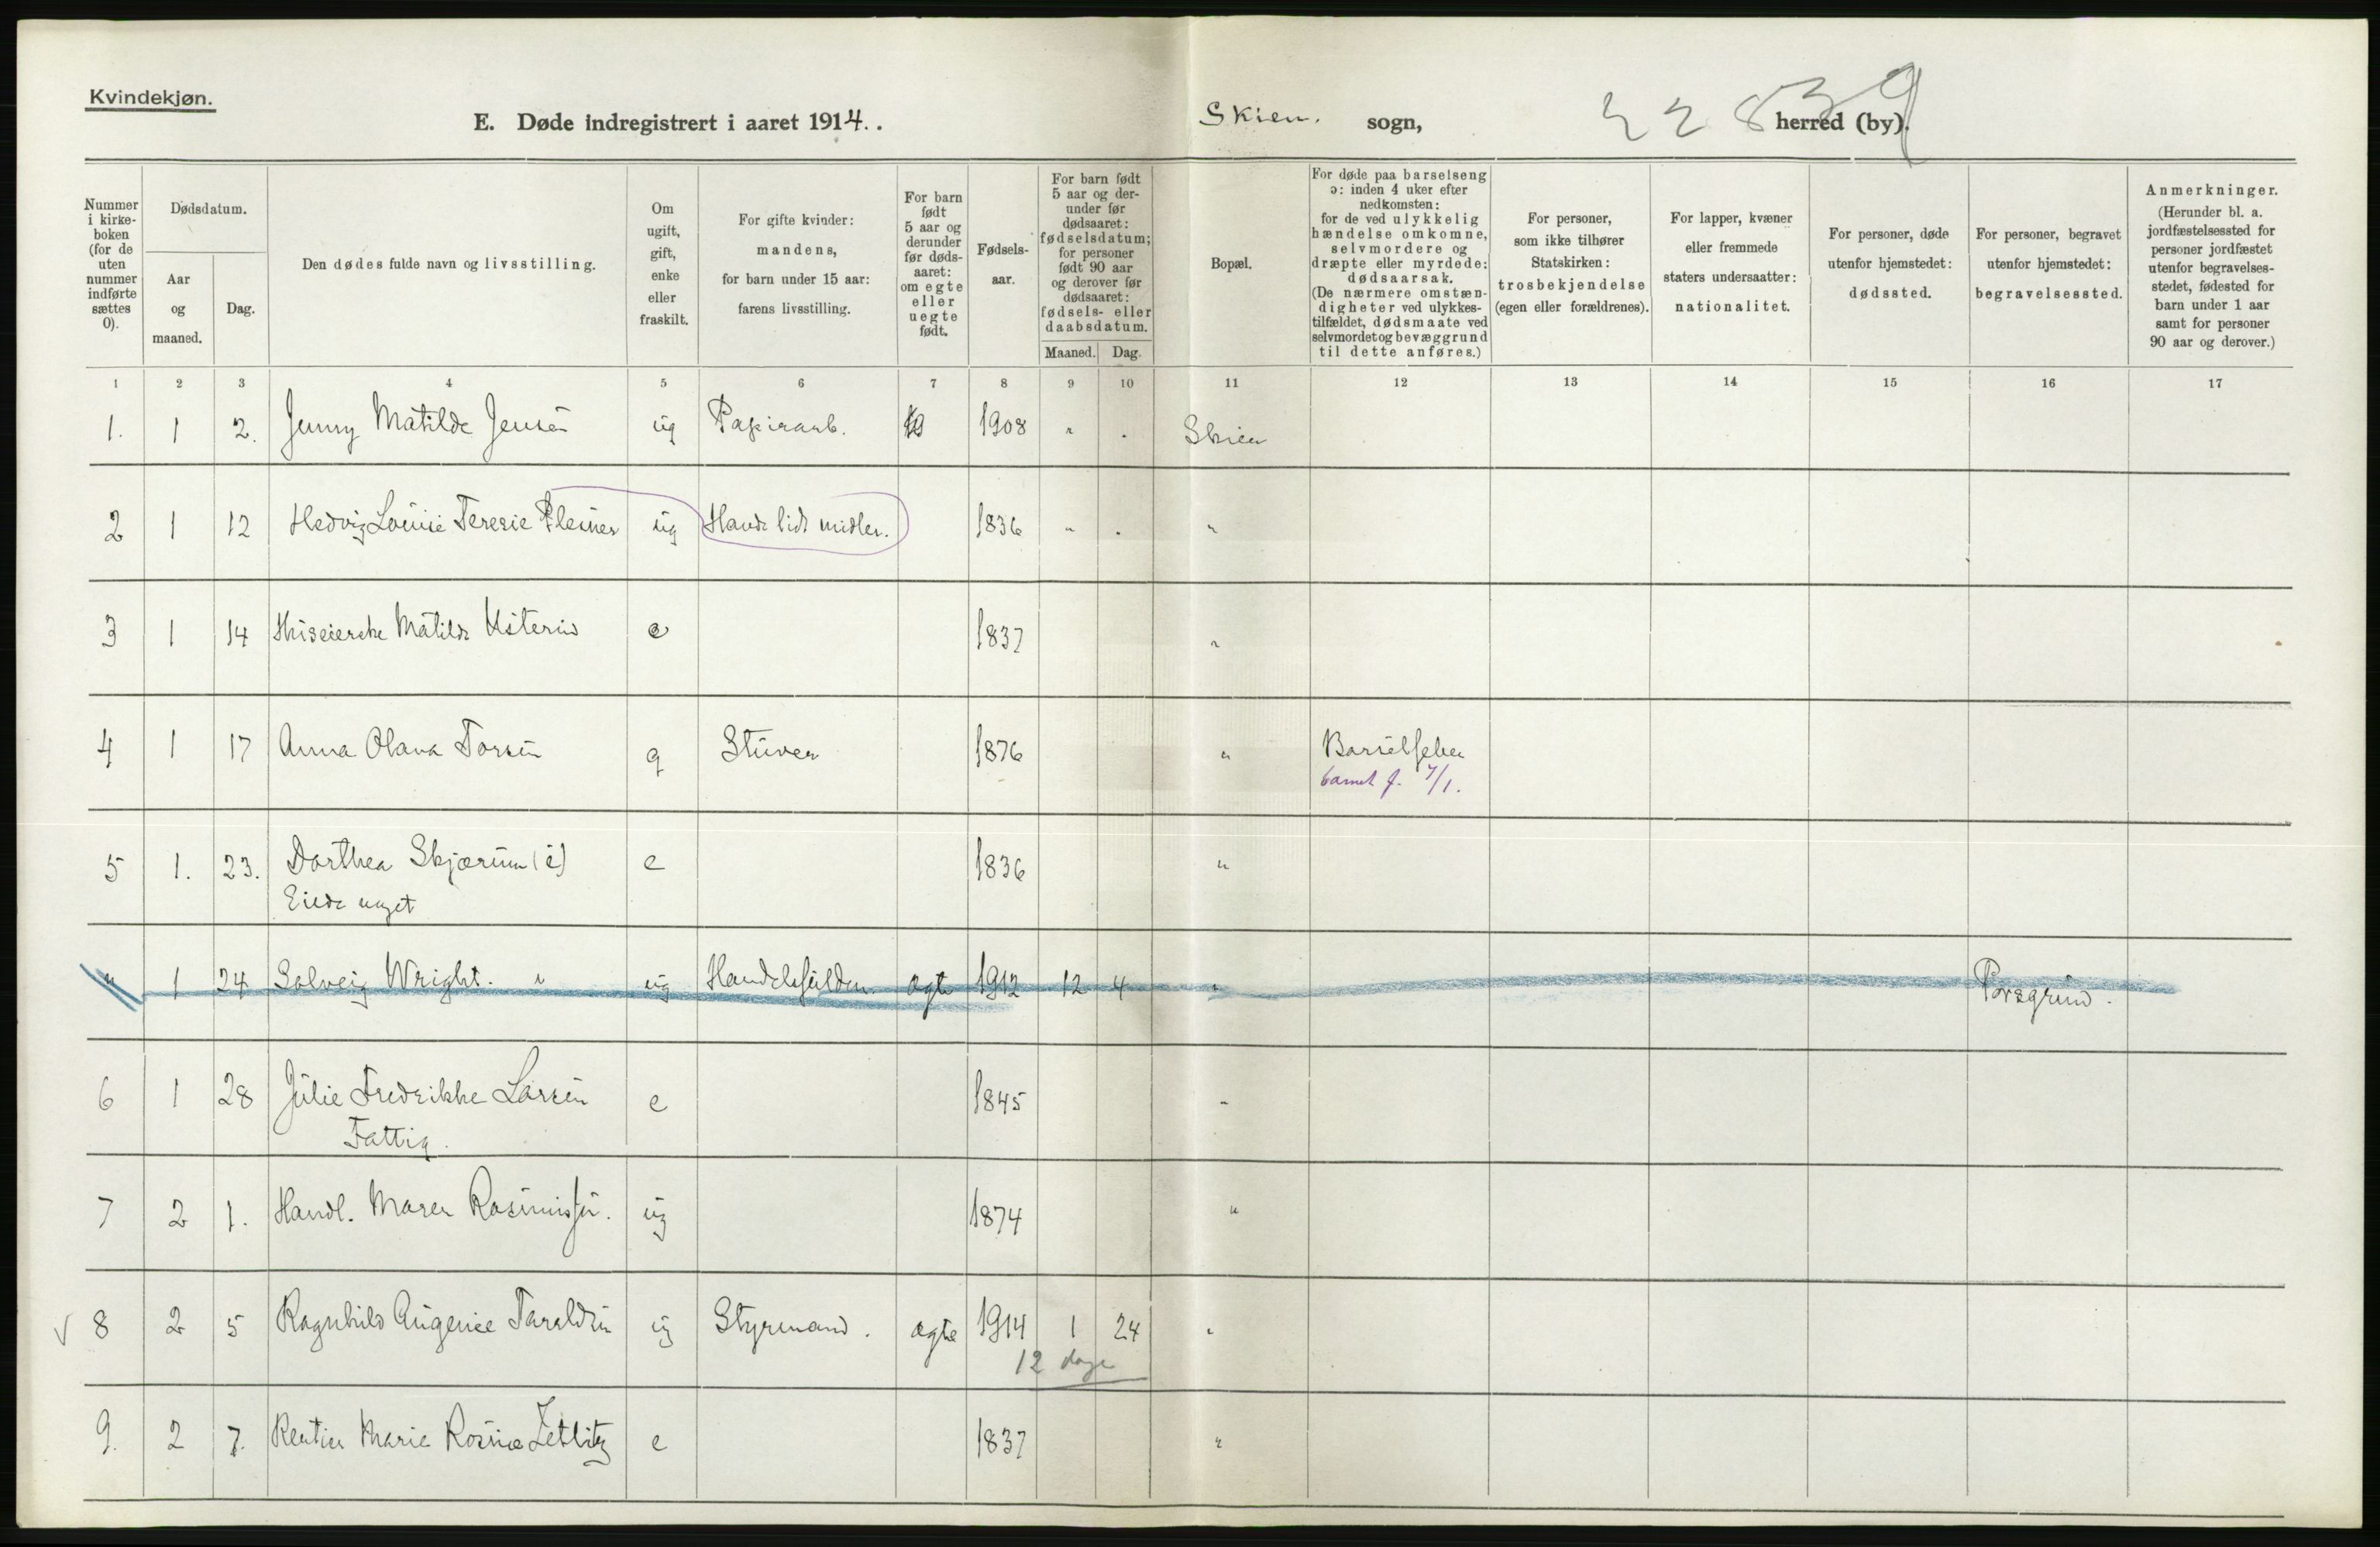 Kvindekjøn.
E. Døde indregistrert i aaret 1914.
Skien. sogn,
herred (by).
Nummer i kirke-boken (for de uten nummer indførte sættes 0).
Dødsdatum.
Aar og maaned.
Dag.
Den dødes fulde navn og livsstilling.
Om ugift, gift, enke eller fraskilt.
For gifte kvinder: mandens, for barn under 15 aar: farens livsstilling.
For barn født 5 aar og derunder før døds-aaret: om egte eller uegte født.
Fødsels-aar.
For barn født 5 aar og der-under før dødsaaret: fødselsdatum; for personer født 90 aar og derover før dødsaaret: fødsels- eller daabsdatum.
Maaned. Dag.
Bopæl.
For døde paa barselseng ɔ: inden 4 uker efter nedkomsten: for de ved ulykkelig hændelse omkomne, selvmordere og dræpte eller myrdede: dødsaarsak. (De nærmere omstæn-digheter ved ulykkes-tilfældet, dødsmaate ved selvmordet og bevæggrund til dette anføres.)
For personer, som ikke tilhører Statskirken: trosbekjendelse (egen eller forældrenes).
For lapper, kvæner eller fremmede staters undersaatter: nationalitet.
For personer, døde utenfor hjemstedet: dødssted.
For personer, begravet utenfor hjemstedet: begravelsessted.
Anmerkninger. (Herunder bl. a. jordfæstelsessted for personer jordfæstet utenfor begravelses-stedet, fødested for barn under 1 aar samt for personer 90 aar og derover.)
1 2 3 4 5 6 7 8 9 10 11 12 13 14 15 16 17
1. 1 2. Jenny Matilde Jensen ug Papirarb. 1908 " . Skien
2 1 12 Hedvig Louise Teresie ug Havde lidt midler. 1836 " . "
3 1 14 Matilde e 1837 "
4 1 17 Anna Olava Torsen g Stuver 1876 " Barselfeber
barnet f. 7/1.
5 1. 23. Dorthea e 1836 "
Eiede noget
" 1 24 Solveig Wright. " ug ægte 1912 12 4 " Porsgrund.
6 1 28 Julie Fredrikke Larsen e 1845 "
Fattig.
7 2 1. Handl. Maren Rasmussen. ug 1874 "
8 2 5 Ragnhild Augenie Taraldsen ug Styrmand. ægte 1914 1 24 "
12 dage
9. 2 7. Rentier Marie Rosine Zetlitz e 1837 "